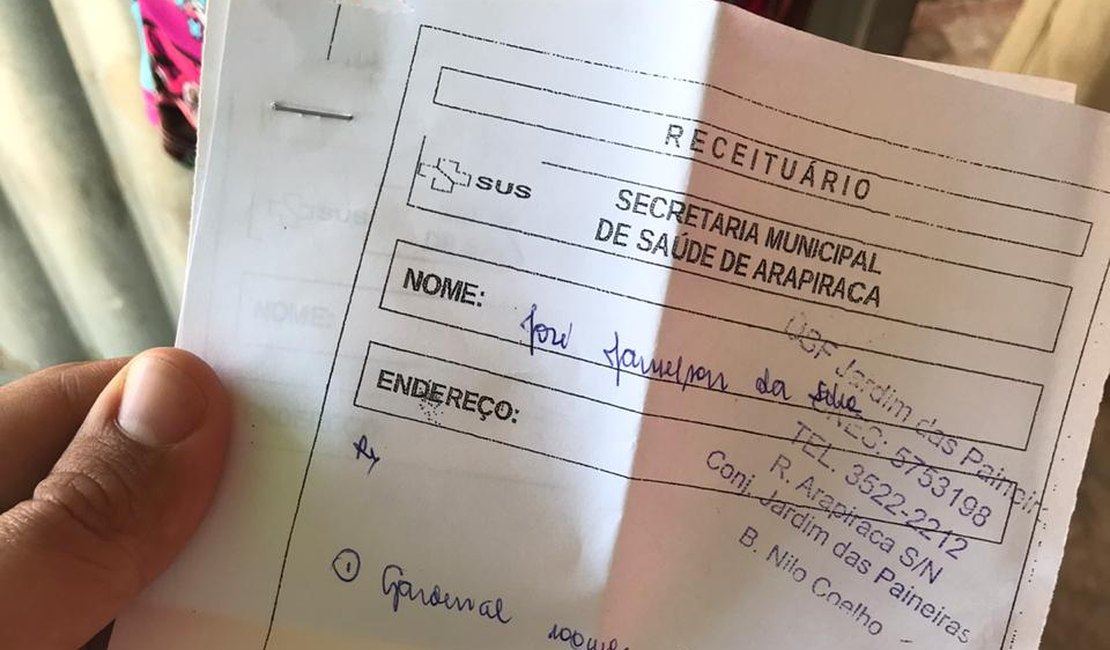 RECEITUÁRIO
SUS
SECRETARIA MUNICIPAL
DE SAÚDE DE ARAPIRACA
NOME: José Jamelson da Silva
ENDEREÇO:
USF Jardim das Paineir
CNEC: 5753198
TEL. 3522-2212
R. Arapiraca S/N
Conj. Jardim das Paineiras
B. Nilo Coelho
① Gardenal 100m
SUS
NOME: